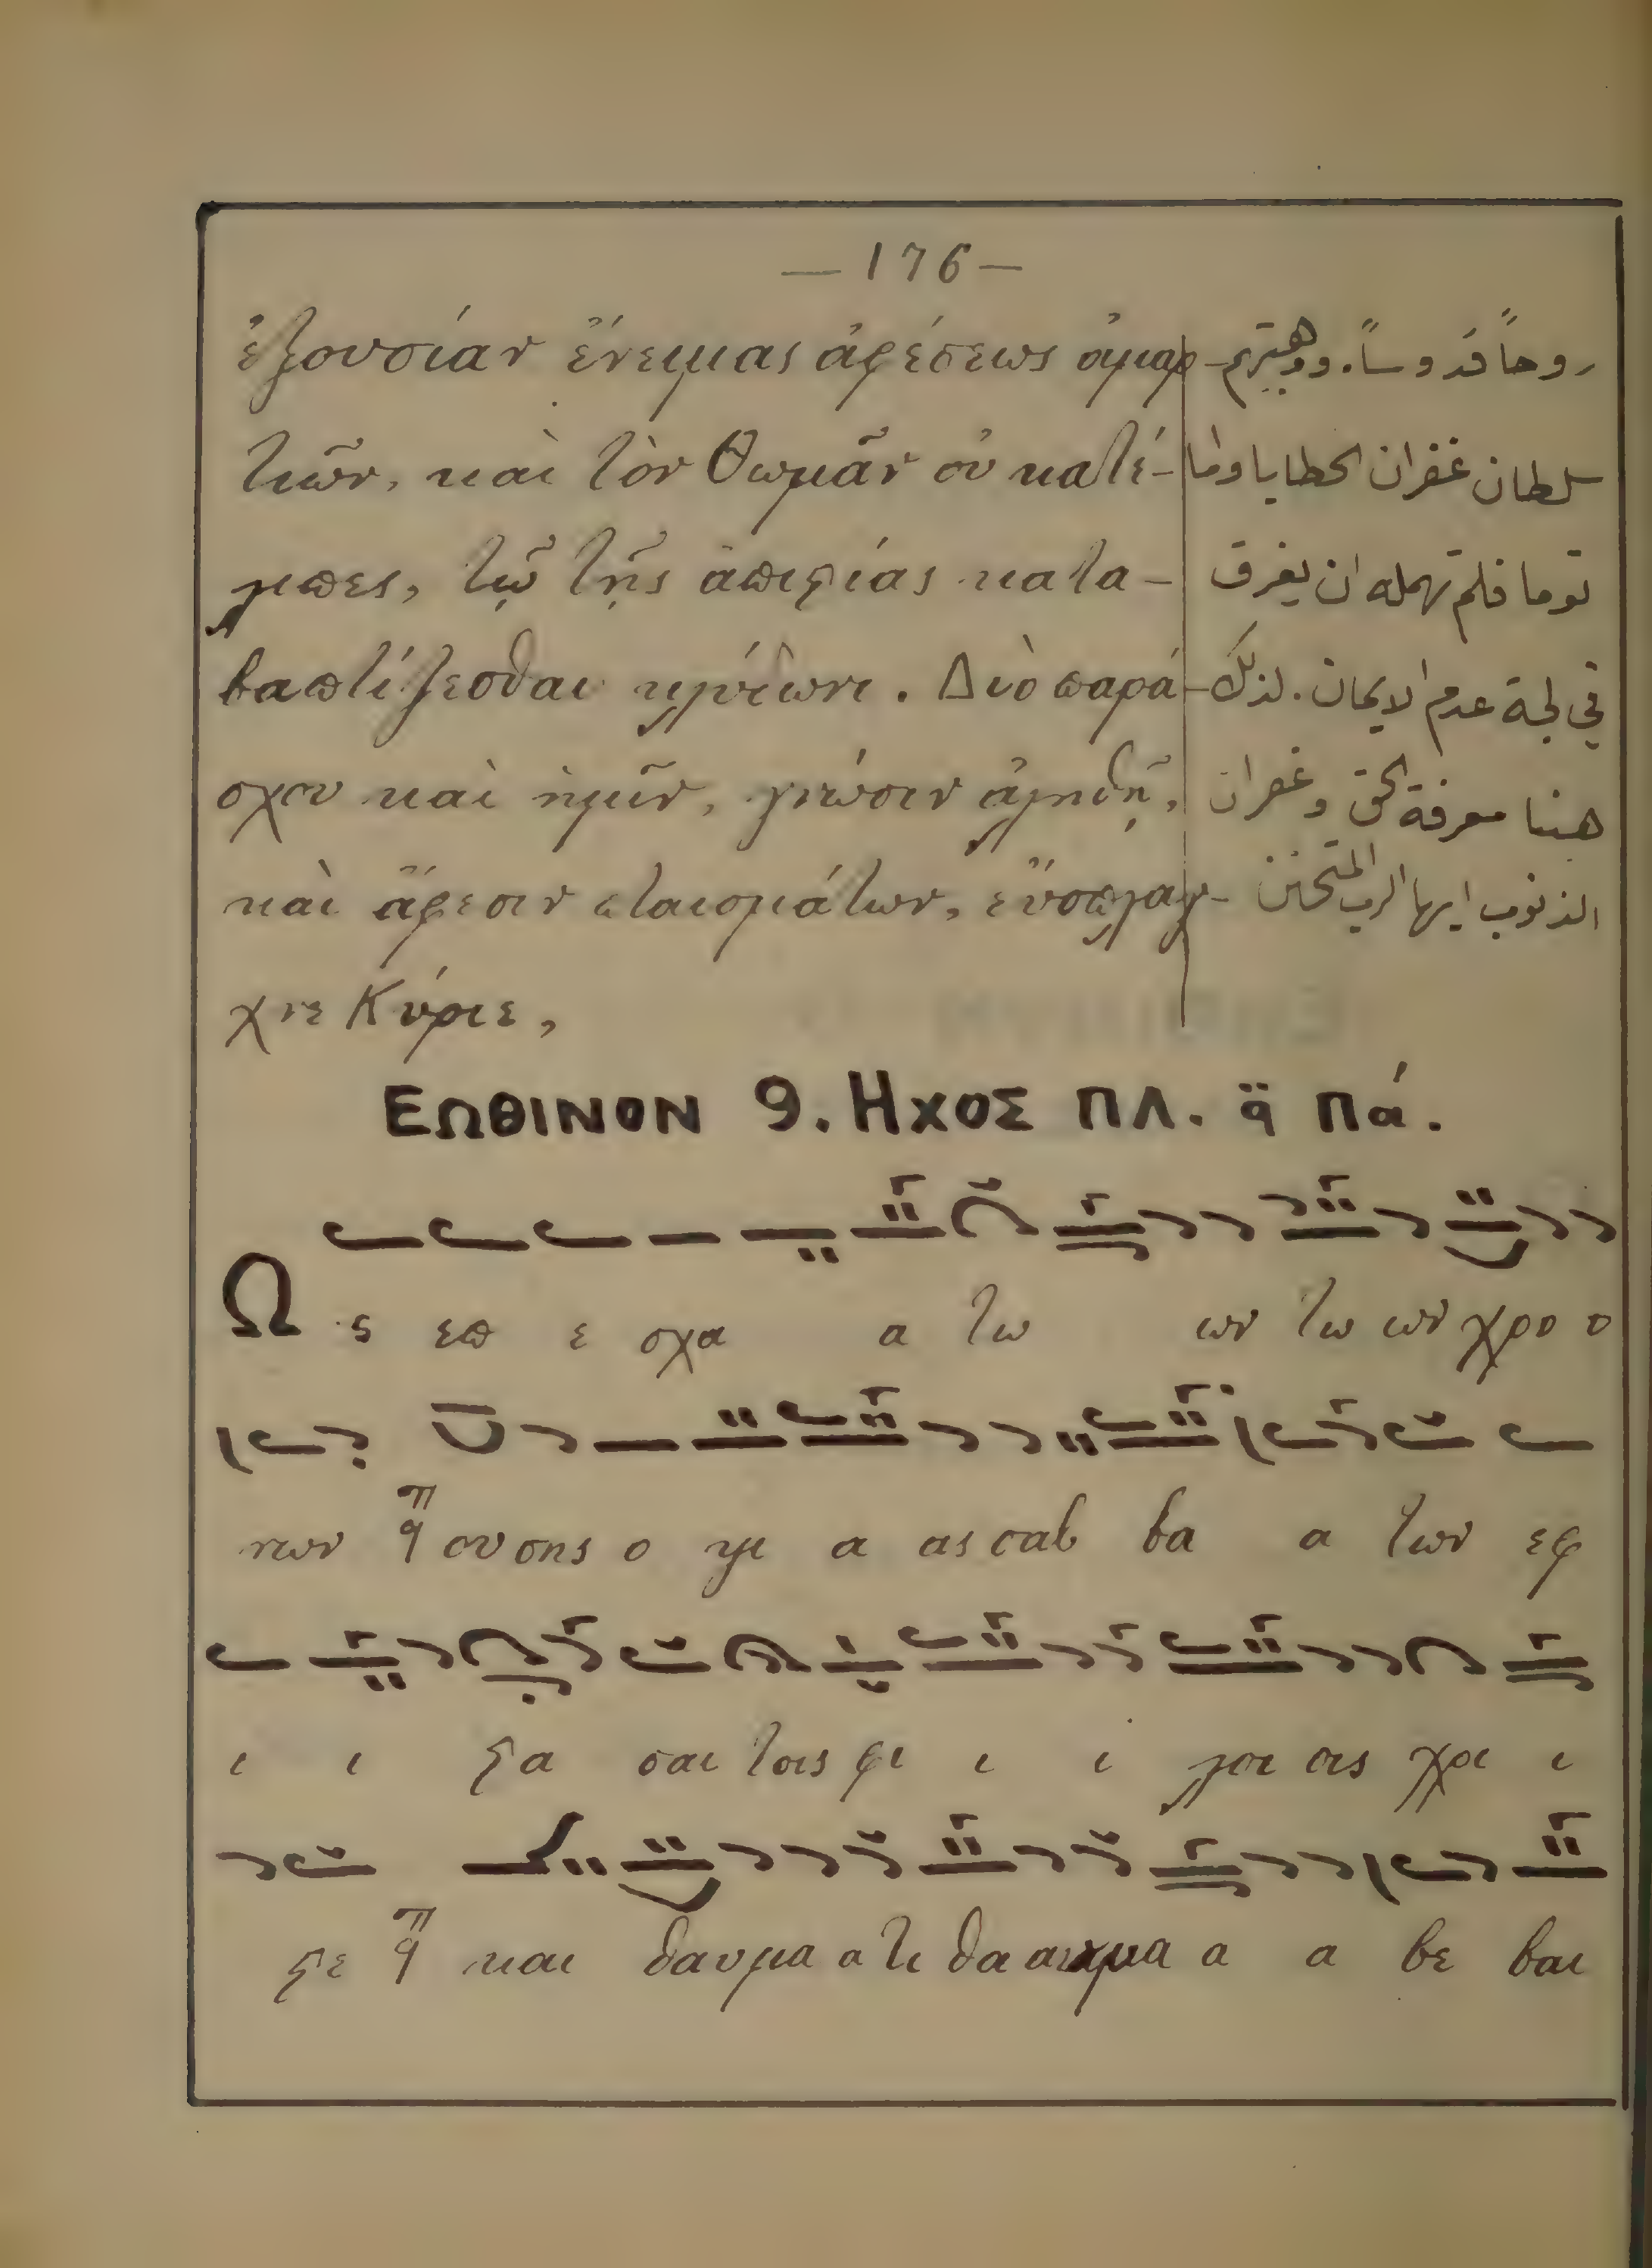 —176—
ἐξουσίαν ἔνειμας ἀφέσεως ἁμαρ-
τιῶν, καὶ τὸν Θωμᾶν οὐ κατέ-
λιπες, τῷ τῆς ἀπιστίας κατα-
βαπτίζεσθαι κλύδωνι. Διὸ παρά-
σχου καὶ ἡμῖν, γνῶσιν ἀληθῆ,
καὶ ἄφεσιν πταισμάτων, εὔσπλαγ-
χνε Κύριε,
روحاً قدوساً. ووهبتهم
سلطان غفران الخطايا واما
توما فلم تهمله ان يغرق
في لجة عدم الايمان. لذلك
هبنا معرفة الحق وغفران
الذنوب ايها الرب المتحنن
ΕΩΘΙΝΟΝ 9. ΗΧΟΣ ΠΛ. q̈ Πά.
Ω ς επ ε σχα α τω ων τω ων χρο ο
νων ου σης ο ψι α ας σαβ βα α των εφ
ι ι ϛα σαι τοις φι ι ι λοι οις χρι ι
ϛε και θαυμα α τι θα αυμα α α βε βαι